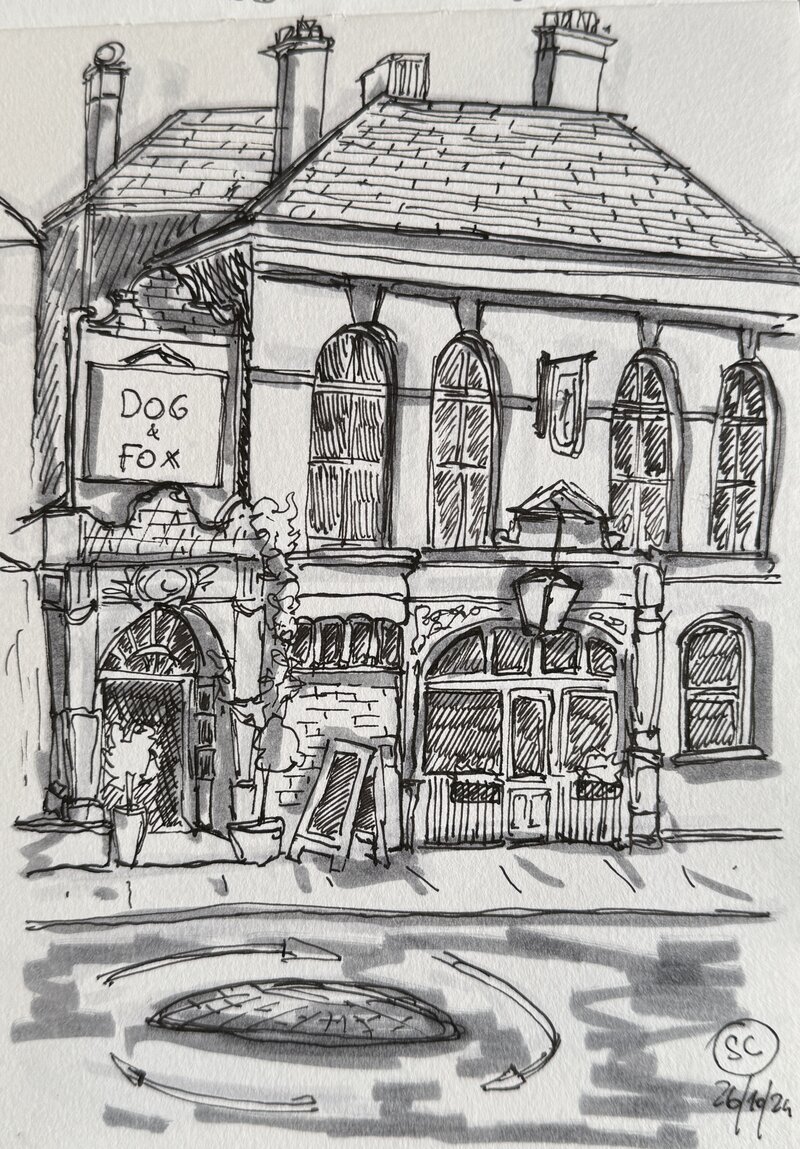 DOG
&
FOX
SC
26/10/24